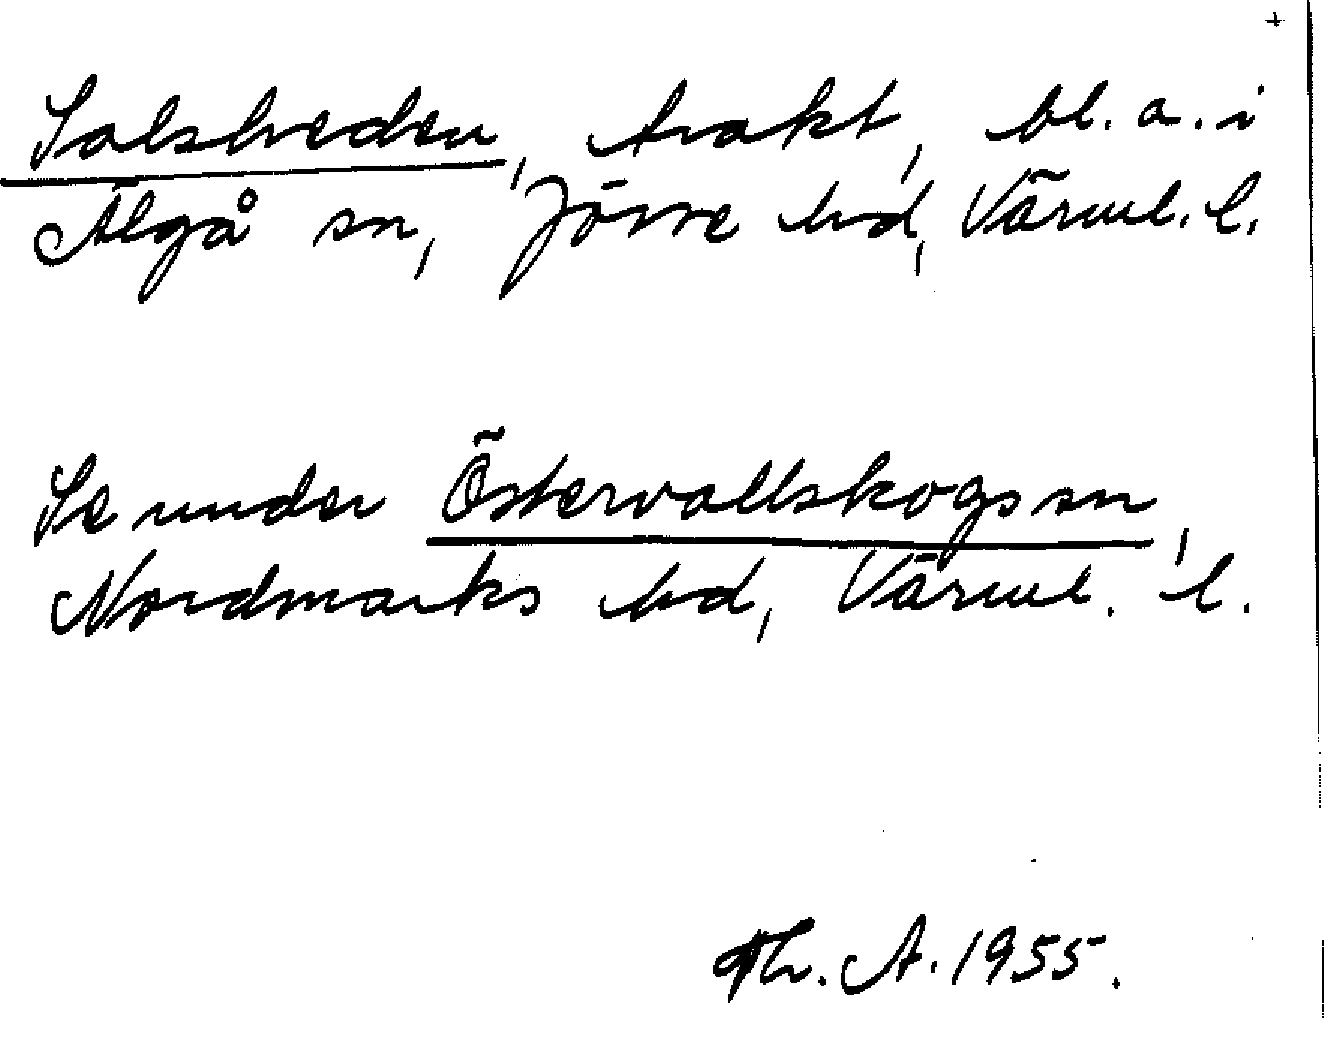 +
Salsheden, trakt, bl. a. i
Älgå sn, Jösse hd, Värml. l.
Se under Östervallskogs sn,
Nordmarks hd, Värml. l.
Th. A. 1955.